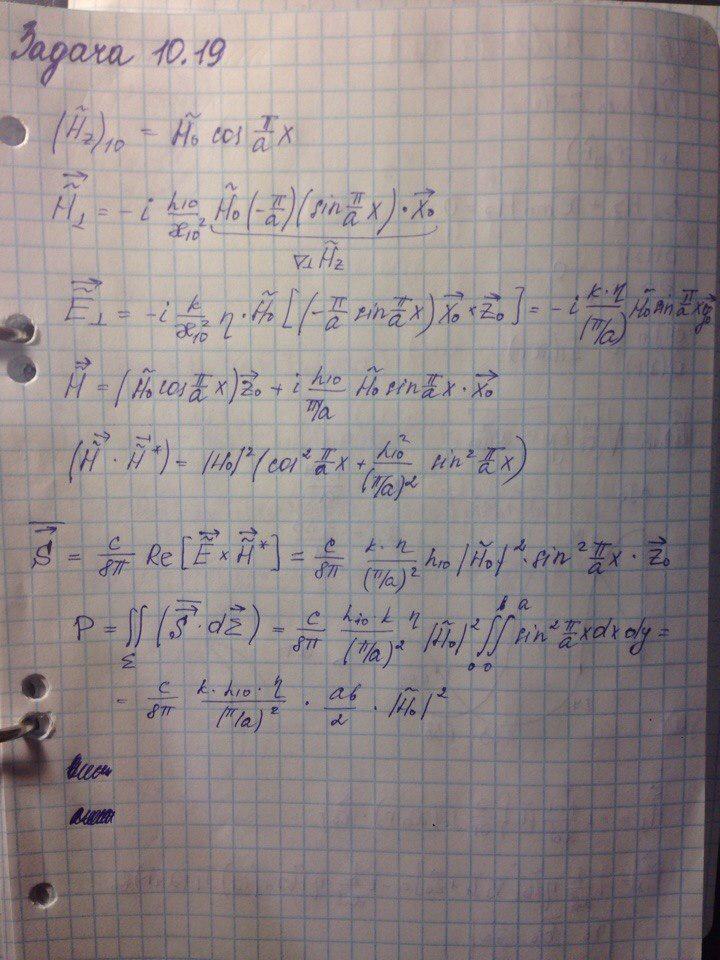 Задача 10.19
(H̃z)₁₀ = H̃₀ cos π/a x
H̃⃗⊥ = -i h₁₀/æ₁₀² H̃₀ (-π/a)(sin π/a x) · x⃗₀
∇⊥H̃z
Ẽ⃗⊥ = -i k/æ₁₀² η · H̃₀ [(-π/a sin π/a x) x⃗₀ × z⃗₀] = -i k·η/(π/a) H̃₀ sin π/a x y⃗₀
H̃⃗ = (H̃₀ cos π/a x) z⃗₀ + i h₁₀/π/a H̃₀ sin π/a x · x⃗₀
(H̃⃗ · H̃⃗*) = |H₀|² (cos² π/a x + h₁₀²/(π/a)² sin² π/a x)
S⃗ = c/8π Re [Ẽ⃗ × H̃⃗*] = c/8π k·η/(π/a)² h₁₀ |H̃₀|² · sin² π/a x · z⃗₀
P = ∬Σ (S⃗ · dΣ⃗) = c/8π h₁₀·k/(π/a)² η |H̃₀|² ∫₀ᵇ∫₀ᵃ sin² π/a x dx dy =
= c/8π k·h₁₀·η/(π/a)² · ab/2 · |H̃₀|²